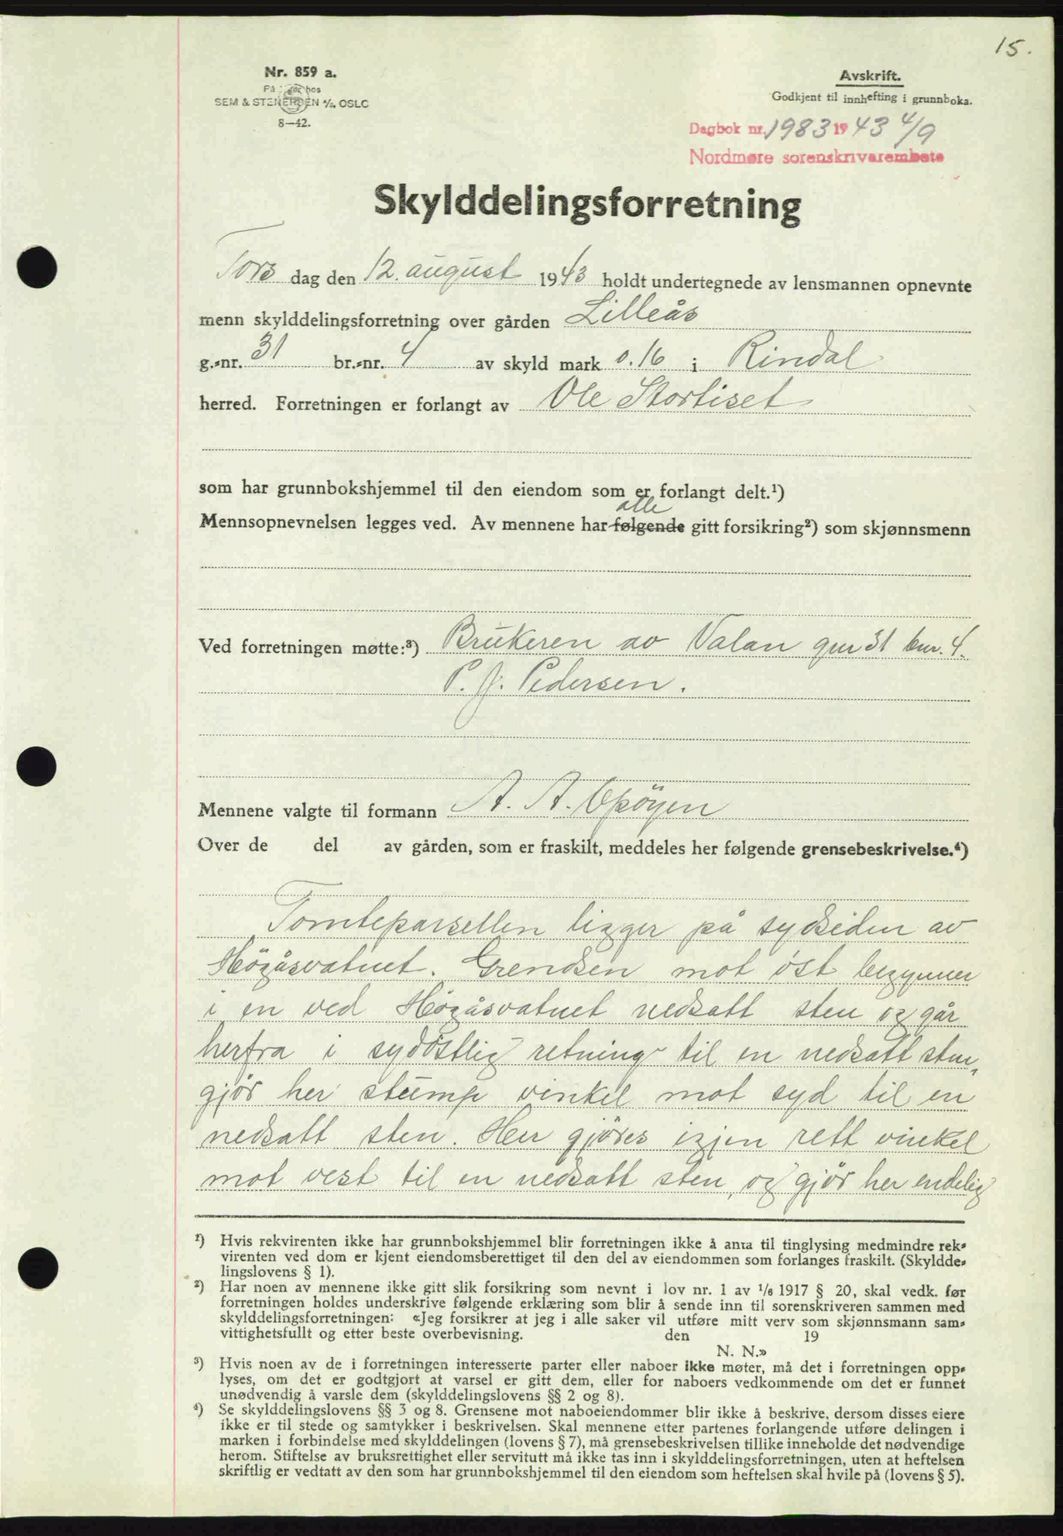 15.
Nr. 859 a.
SEM & STENERSEN A/S, OSLO
8—42.
Avskrift.
Godkjent til innhefting i grunnboka.
Dagbok nr. 1983 1943 4/9
Nordmøre sorenskrivarembete
Skylddelingsforretning
Tors dag den 12. august 1943 holdt undertegnede av lensmannen opnevnte
menn skylddelingsforretning over gården Lilleås
g.-nr. 31 br.-nr. 4 av skyld mark 0.16 i Rindal
herred. Forretningen er forlangt av Ole Stortiset
som har grunnbokshjemmel til den eiendom som er forlangt delt.¹)
alle
Mennsopnevnelsen legges ved. Av mennene har følgende gitt forsikring²) som skjønnsmenn
Ved forretningen møtte:³) Brukeren av Valan gnr 31 bnr. 4.
P. J. Pedersen.
Mennene valgte til formann A. A. Opöyen
Over de del av gården, som er fraskilt, meddeles her følgende grensebeskrivelse.⁴)
Tomteparsellen ligger på sydsiden av
Högåsvatnet. Grendsen mot öst begynner
i en ved Högåsvatnet nedsatt sten og går
herfra i sydöstlig retning til en nedsatt sten,
gjör her stump vinkel mot syd til en
nedsatt sten. Her gjöres igjen rett vinkel
mot vest til en nedsatt sten, og gjör her endelig
¹) Hvis rekvirenten ikke har grunnbokshjemmel blir forretningen ikke å anta til tinglysing medmindre rek-
virenten ved dom er kjent eiendomsberettiget til den del av eiendommen som forlanges fraskilt. (Skyldde-
lingslovens § 1).
²) Har noen av mennene ikke gitt slik forsikring som nevnt i lov nr. 1 av 1/6 1917 § 20, skal vedk. før
forretningen holdes underskrive følgende erklæring som blir å sende inn til sorenskriveren sammen med
skylddelingsforretningen: «Jeg forsikrer at jeg i alle saker vil utføre mitt verv som skjønnsmann sam-
vittighetsfullt og etter beste overbevisning. den 19
N. N.»
³) Hvis noen av de i forretningen interesserte parter eller naboer ikke møter, må det i forretningen opp-
lyses, om det er godtgjort at varsel er gitt dem, eller for naboers vedkommende om det er funnet
unødvendig å varsle dem (skylddelingslovens §§ 2 og 8).
⁴) Se skylddelingslovens §§ 3 og 8. Grensene mot naboeiendommer blir ikke å beskrive, dersom disses eiere
ikke er til stede og samtykker i beskrivelsen. Skal mennene etter partenes forlangende utføre delingen i
marken i forbindelse med skylddelingen (lovens § 7), må grensebeskrivelsen tillike inneholde det nødvendige
herom. Stiftelse av bruksrettighet eller servitutt må ikke tas inn i skylddelingsforretningen, uten at heftelsen
skriftlig er vedtatt av den som har grunnbokshjemmel til den eiendom som heftelsen skal hvile på (lovens § 5).